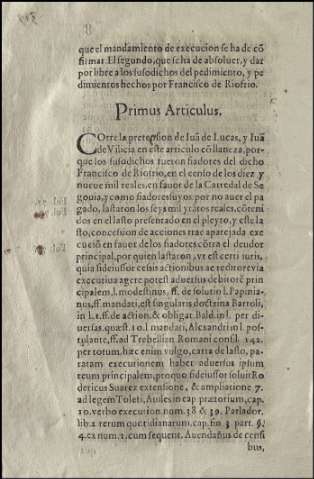 que el mandamiento de execucion se ha de cõ
firmar. El segundo, que se ha de absoluer, y dar
por libre a los susodichos del pedimiento, y pe
dimientos hechos por Francisco de Riofrio.
Primus Articulus.
COrre la pretension de Iuã de Lucas, y Iuã
de Vilicia en este articulo cõ llaneza, por-
que los susodichos fueron fiadores del dicho
Francisco de Riofrio, en el censo de los diez y
nueue mil reales, en fauor de la Catredal de Se
gouia, y como fiadores suyos por no auer el pa
gado, lastaron los seys mil y reales, cõteni
dos en el lasto presentado en el pleyto, y este la
sto, con cesion de acciones trae aparejada exe
cuciõ en fauor de los fiadores cõtra el deudor
principal, por quien lastaron, vt est certi iuris,
quia fideiussor cessis actionibus ac redire via
executiua agere potest aduersus debitorẽ prin
cipalem, l. modestinus. ff. de solutio l. Papinia-
nus, ff. mandati, est singularis doctrina Bartoli,
in l. ff. de action. & obligat. Bald. in l. per di
uersas, quæst. 10. l. mandati, Alexandri in l. pos-
tulante, ff. ad Trebellian. Romani consil. 142.
per totum, hæc enim vulgo, carta de lasto, pa-
ratam executionem habet aduersus ipsum
reum principalem, pro quo fideiussor soluit Ro
dericus Suarez extensione, & ampliatione 7.
ad legem Toleti, Auiles in cap. prætorium, cap.
10. verbo execution num. 38 & 39. Parlador.
lib. 2 rerum quotidianarum, cap. fin 3 part. §.
4. ex num. 2, cum sequent. Auendañus de censi
bus,